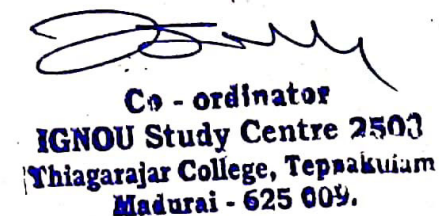 Co - ordinator
IGNOU Study Centre 2503
Thiagarajar College, Teppakulam
Madurai - 625 009.